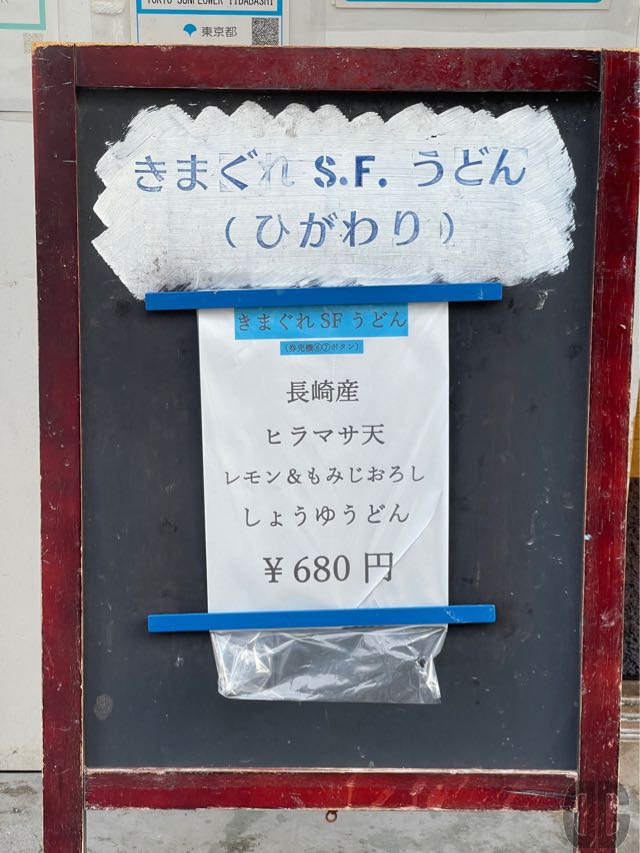 TOKYO SUNFLOWER IIDABASHI
東京都
きまぐれ S.F. うどん
(ひがわり)
きまぐれSFうどん
(券売機⑥⑦ボタン)
長崎産
ヒラマサ天
レモン&もみじおろし
しょうゆうどん
¥680円